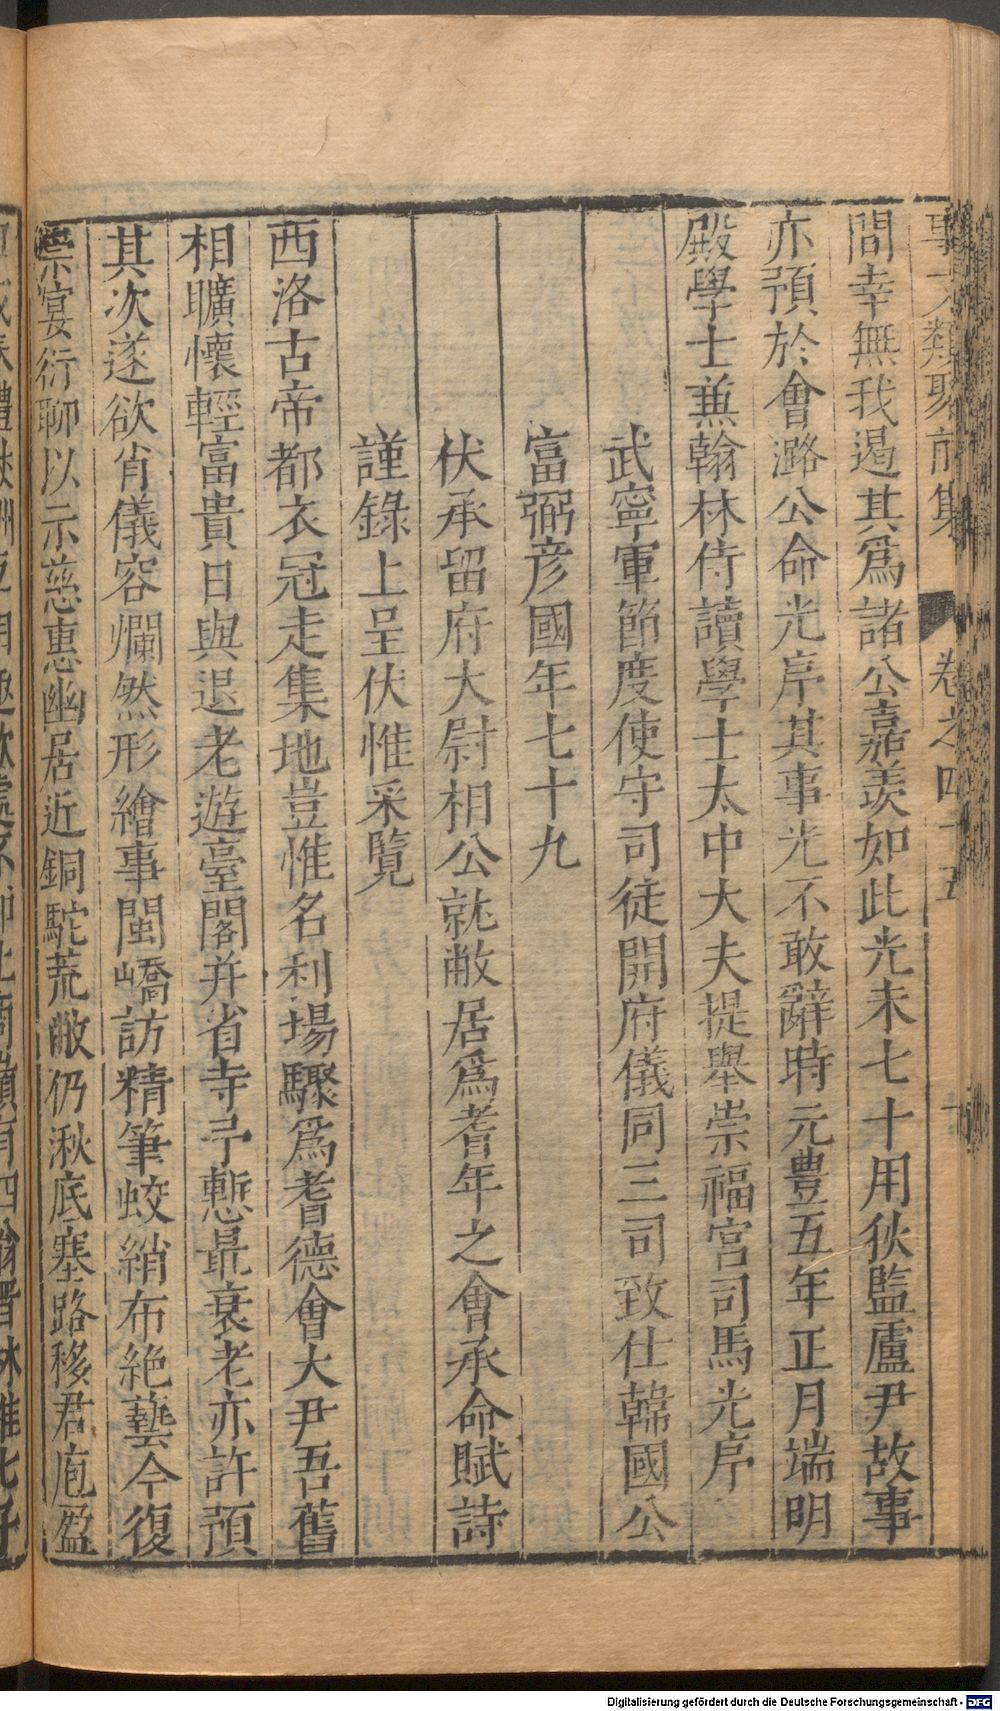 事文類聚前集 卷之四十五
間幸無我遏其爲諸公嘉羨如此光未七十用狄監盧尹故事
亦預於會潞公命光序其事光不敢辭時元豊五年正月端明
殿學士兼翰林侍讀學士太中大夫提舉崇福宮司馬光序
武寧軍節度使守司徒開府儀同三司致仕韓國公
富弼彦國年七十九
伏承留府大尉相公就敝居爲耆年之會承命賦詩
謹錄上呈伏惟采覽
西洛古帝都衣冠走集地豈惟名利場驟爲耆德會大尹吾舊
相曠懷輕富貴日與退老遊臺閣并省寺予慙最衰老亦許預
其次遂欲肖儀容爛然形繪事閩嶠訪精筆蛟綃布絶藝今復
崇宴衍聊以示慈惠幽居近銅駝荒敝仍湫底塞路移君庖盈
Digitalisierung gefördert durch die Deutsche Forschungsgemeinschaft - DFG